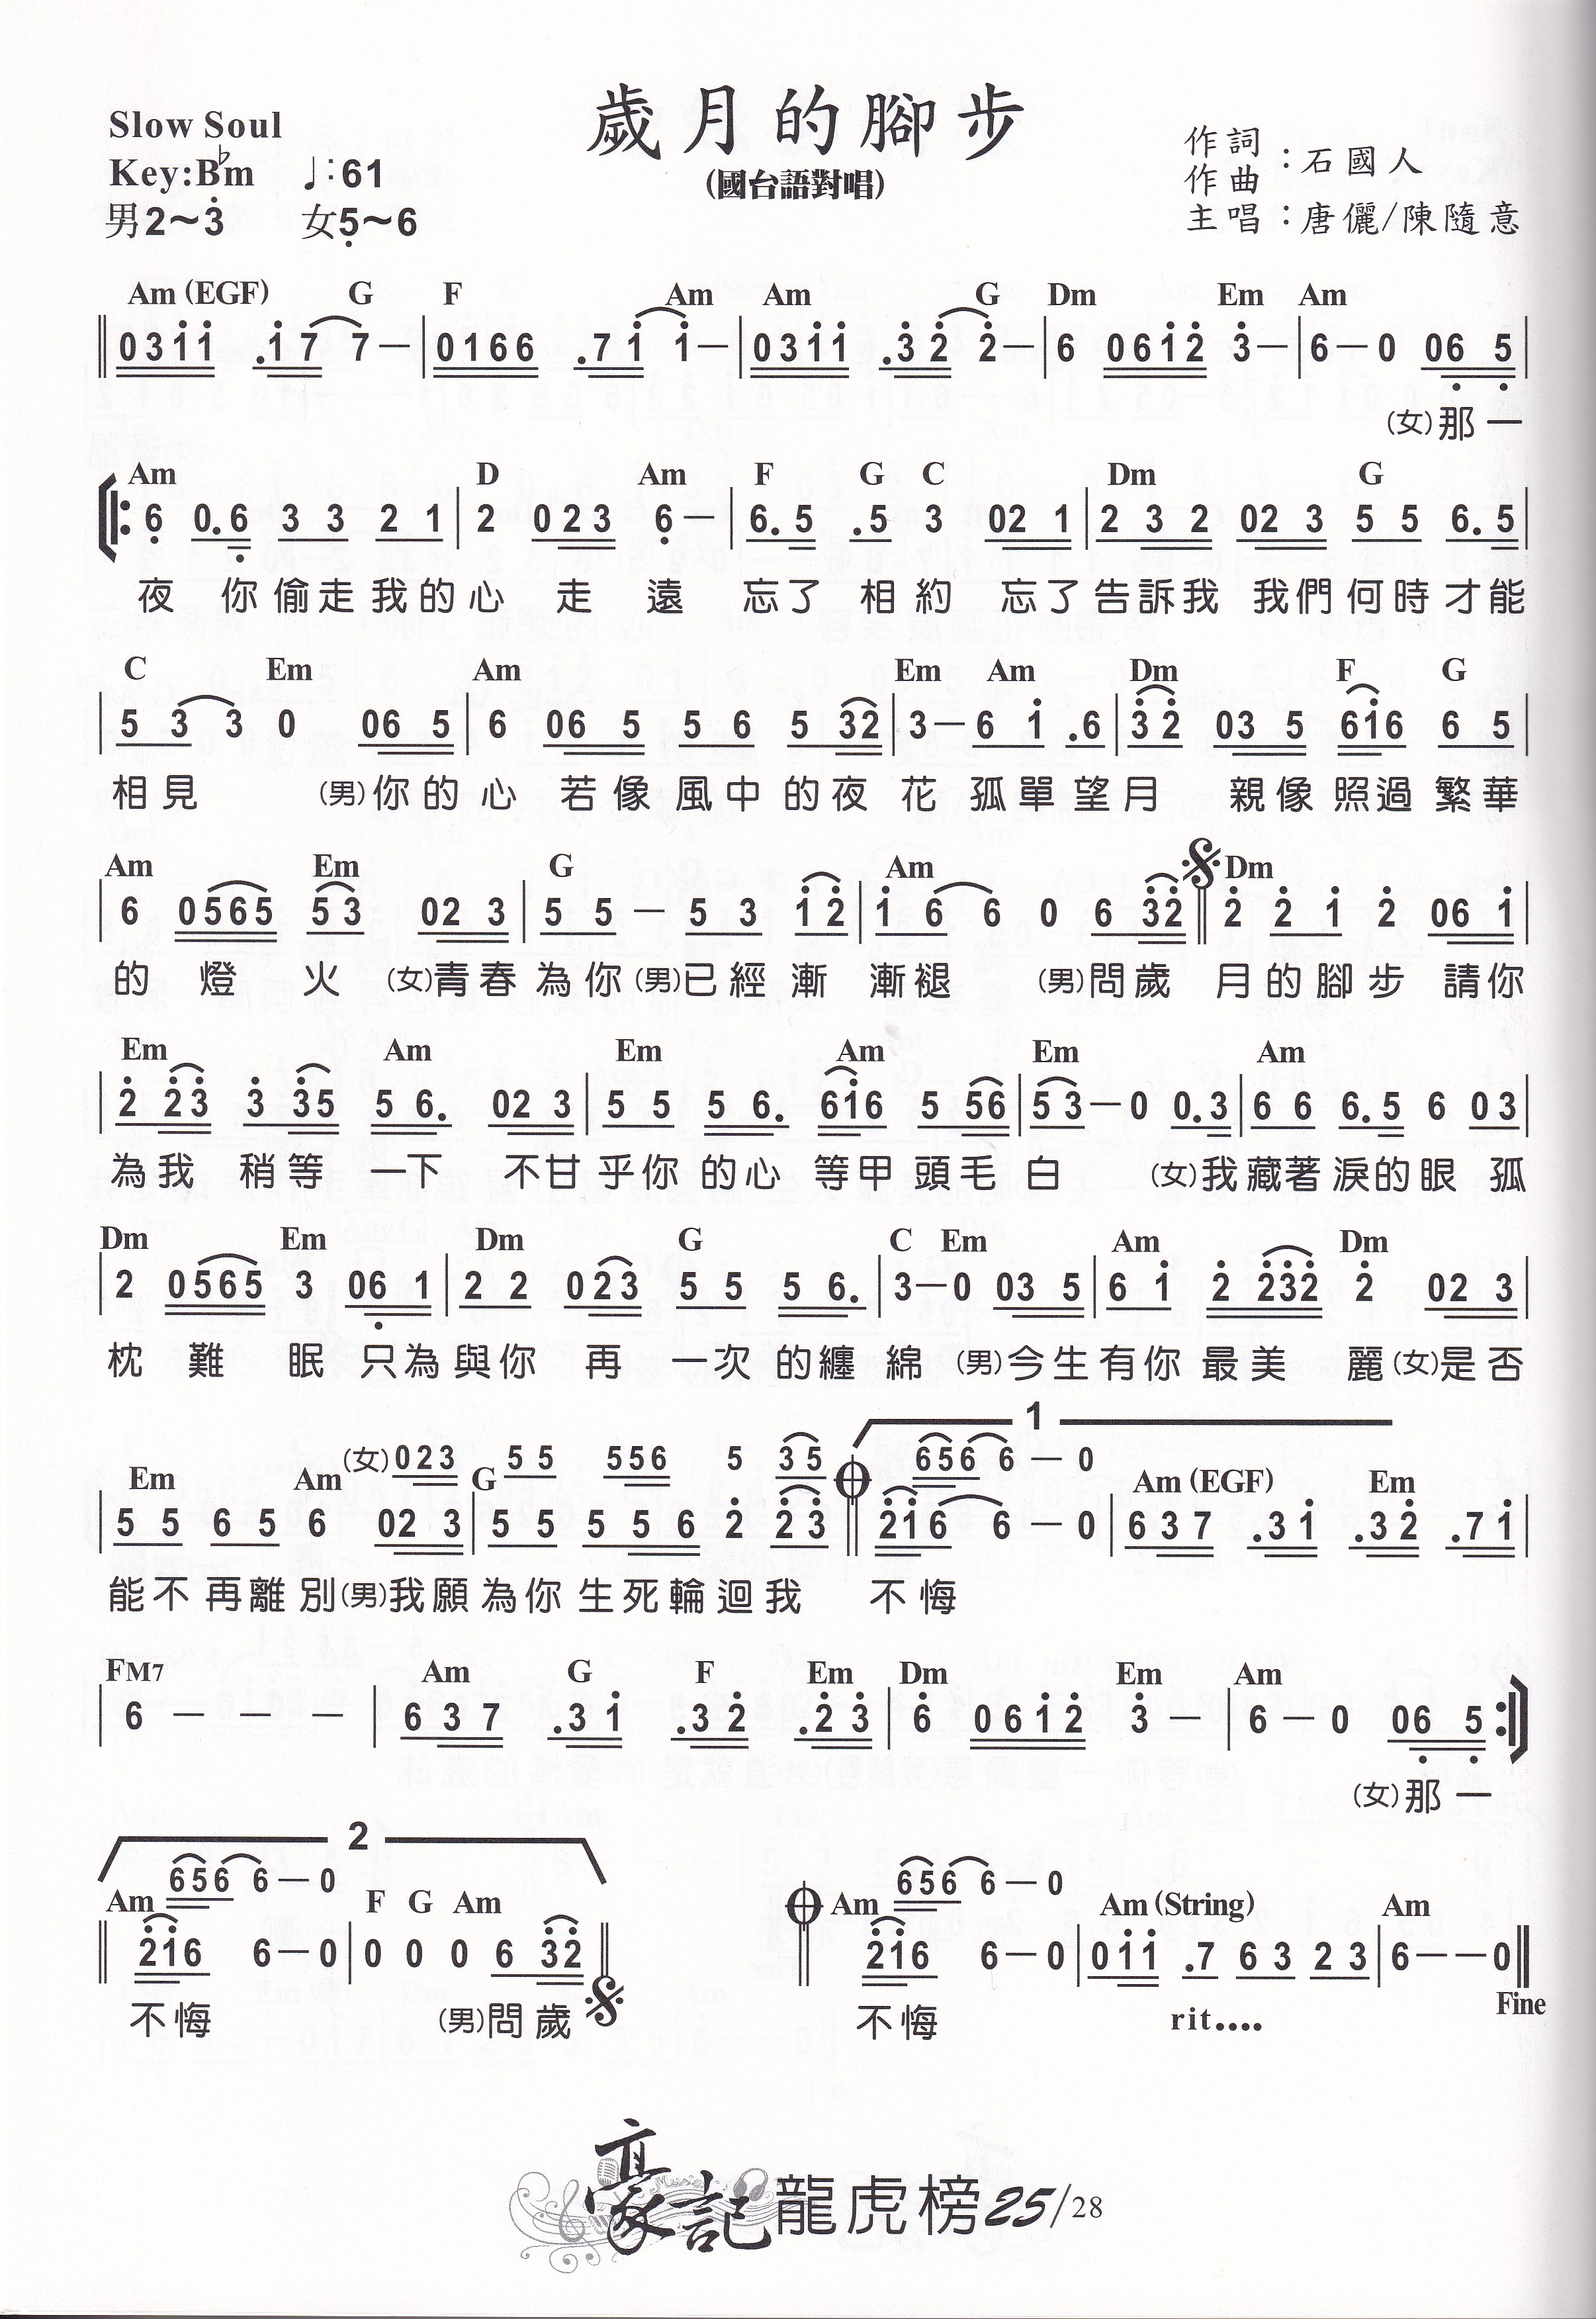 歲月的腳步
(國台語對唱)
Slow Soul
Key:B♭m ♩:61
男2～3̇ 女5̣～6
作詞
作曲：石國人
主唱：唐儷/陳隨意
Am (EGF) G F Am Am G Dm Em Am
‖0 3 1̇ 1̇ .1̇ 7 7—|0 1 6 6 .7 1̇ 1̇—|0 3 1̇ 1̇ .3̇ 2̇ 2̇—|6 0 6 1̇ 2̇ 3̇—|6—0 06̣ 5̣|
(女)那一
Am D Am F G C Dm G
6̣ 0.6̣ 3 3 2 1|2 0 2 3 6̣—|6.5 .5 3 02 1|2 3 2 02 3 5 5 6.5|
夜 你偷走我的心 走 遠 忘了 相約 忘了告訴我 我們何時才能
C Em Am Em Am Dm F G
|5 3 3 0 06 5|6 06 5 5 6 5 32|3—6 1̇ .6|3̇2̇ 03 5 61̇6 6 5|
相見 (男)你的心 若像風中的夜花 孤單望月 親像照過繁華
Am Em G Am Dm
|6 0565 53 02 3|5 5 — 5 3 1̇2̇|1̇ 6 6 0 6 3̇2̇‖2̇ 2̇ 1̇ 2̇ 06 1̇|
的 燈 火 (女)青春為你(男)已經漸 漸褪 (男)問歲 月的腳步 請你
Em Am Em Am Em Am
|2̇ 2̇3̇ 3̇ 3̇5 5 6. 02 3|5 5 5 6. 61̇6 5 56|53—0 0.3|6 6 6.5 6 03|
為我 稍等 一下 不甘乎你的心 等甲頭毛白 (女)我藏著淚的眼 孤
Dm Em Dm G C Em Am Dm
|2 0565 3 06̣ 1|2 2 023 5 5 5 6.|3—0 03 5|6 1̇ 2̇ 2̇3̇2̇ 2̇ 02 3|
枕 難 眠 只為與你 再 一次的纏綿 (男)今生有你最美 麗(女)是否
(女)023 5 5 556 5 35 656 6 — 0 1
Em Am G Am (EGF) Em
|5 5 6 5 6 02 3|5 5 5 5 6 2̇ 2̇3̇‖2̇1̇6 6 — 0|6 3 7 .3 1̇ .3 2̇ .7 1̇|
能不再離別(男)我願為你生死輪迴我 不悔
FM7 Am G F Em Dm Em Am
|6 — — —|6 3 7 .3 1̇ .3 2̇ .2̇ 3̇|6̇ 0 6 1̇ 2̇ 3̇ —|6 — 0 06̣ 5̣
(女)那一
2
656 6 — 0 656 6 — 0
Am F G Am Am Am (String) Am
‖2̇1̇6 6—0|0 0 0 6 3̇2̇‖ 2̇1̇6 6—0|01̇1̇ .7 6 3 2 3|6——0‖
不悔 (男)問歲 不悔 rit.... Fine
豪記龍虎榜25/28